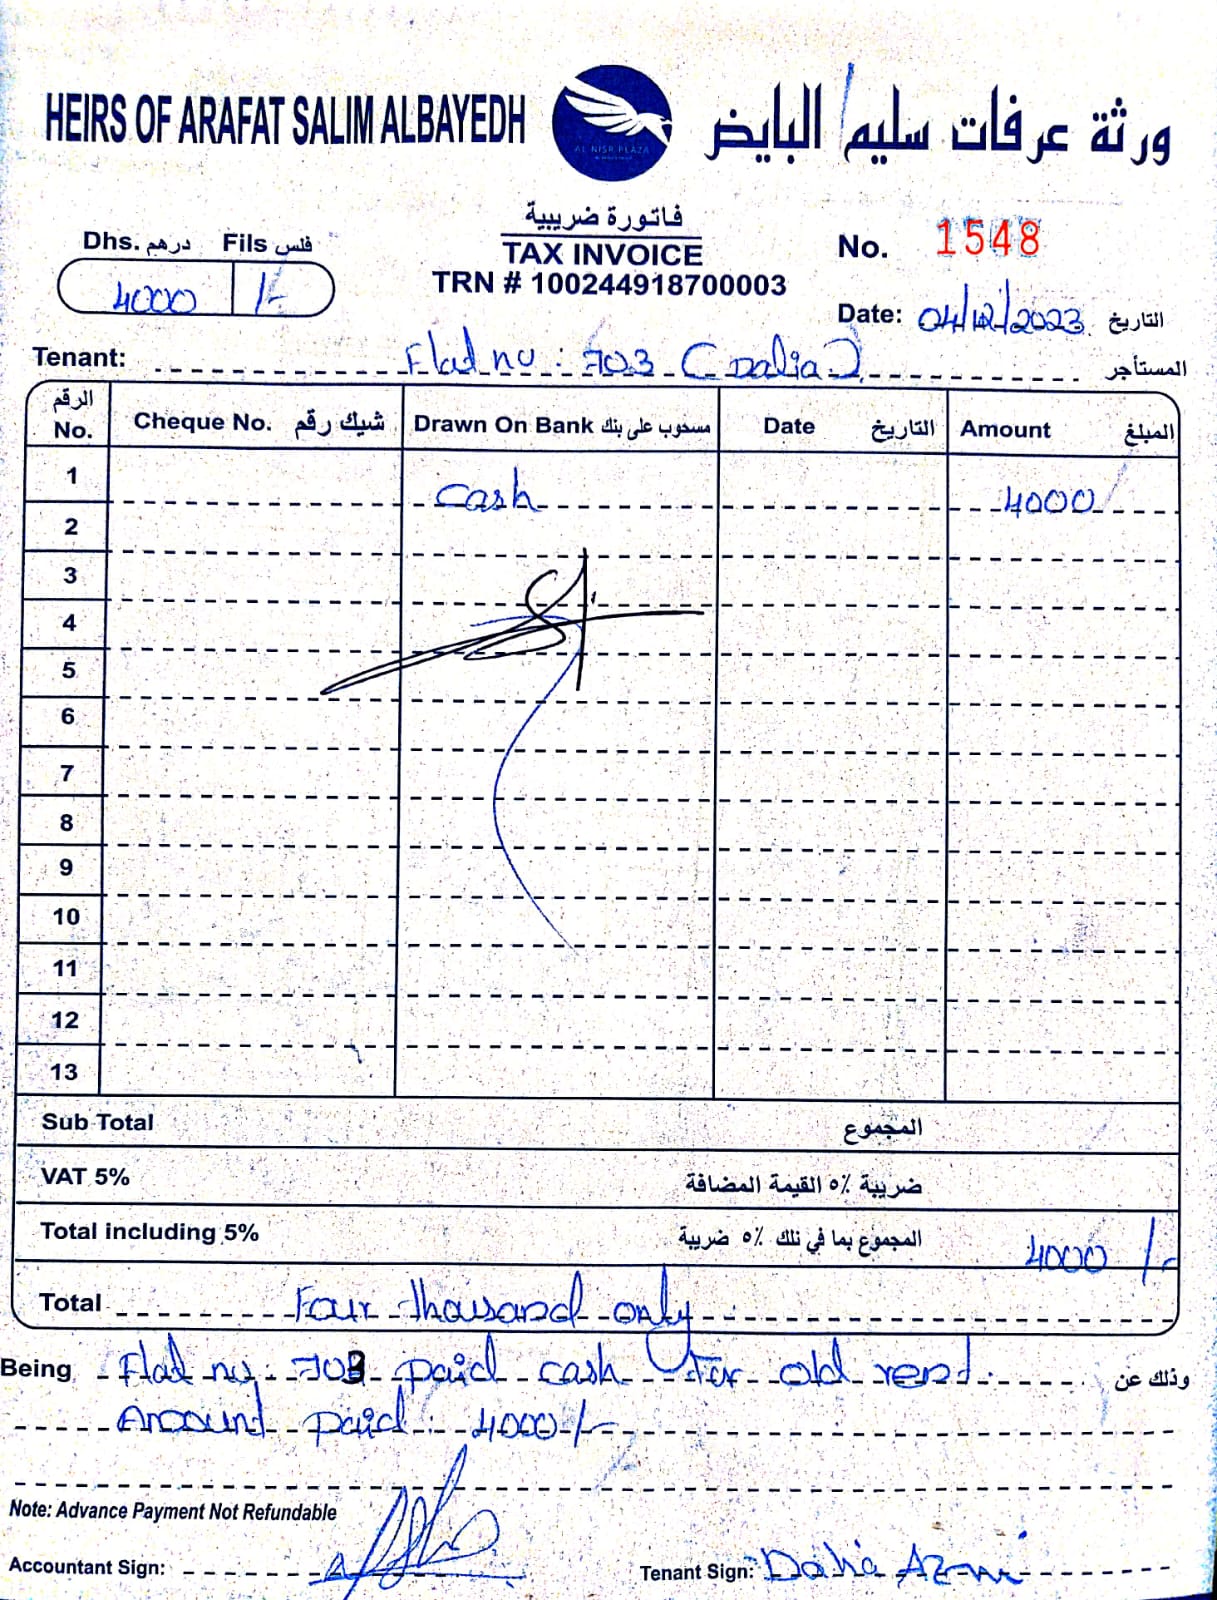 HEIRS OF ARAFAT SALIM ALBAYEDH
ورثة عرفات سليم البايض
AL NISR PLAZA
فاتورة ضريبية
TAX INVOICE
TRN # 100244918700003
Dhs. درهم Fils فلس
4000 /-
No. 1548
Date: 04/12/2023 التاريخ
Tenant: Flad no : 703 (Dalia) المستأجر
الرقم No. Cheque No. شيك رقم Drawn On Bank مسحوب على بنك Date التاريخ Amount المبلغ
1 Cash 4000/
2
3
4
5
6
7
8
9
10
11
12
13
Sub Total المجموع
VAT 5% ضريبة ٥٪ القيمة المضافة
Total including 5% المجموع بما في ذلك ٥٪ ضريبة 4000 /-
Total Four thousand only
Being Flad no: 703 paid cash For old rent. وذلك عن
Amount paid: 4000/-
Note: Advance Payment Not Refundable
Accountant Sign:
Tenant Sign: Dalia Azmi